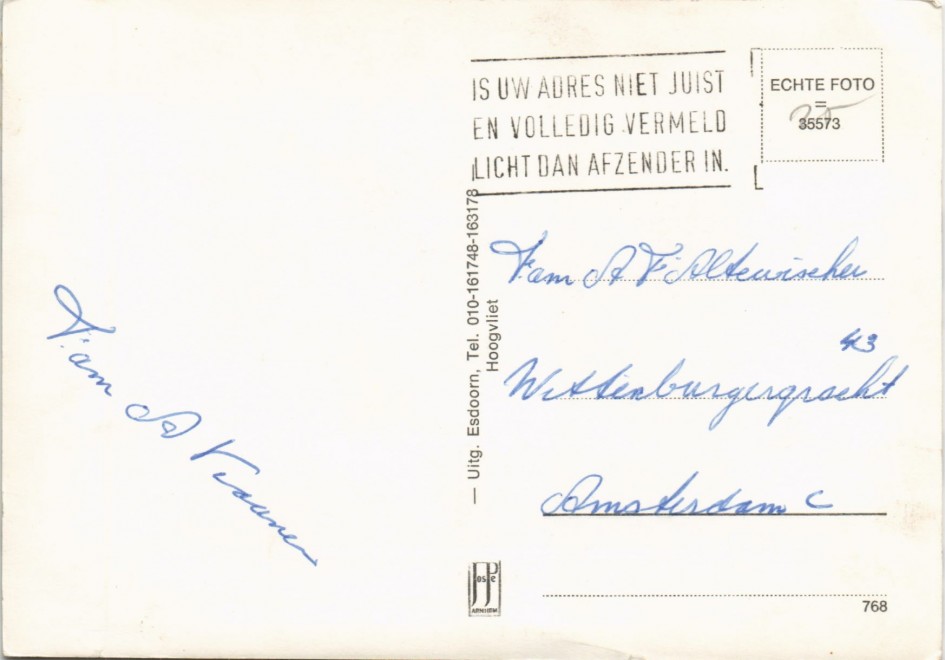 IS UW ADRES NIET JUIST
EN VOLLEDIG VERMELD
LICHT DAN AFZENDER IN.
ECHTE FOTO
=
35573
25
— Uitg. Esdoorn, Tel. 010-161748-163178
Hoogvliet
Fam A Visanen
Fam A F Altewischer
43
Wittenburgergracht
Amsterdam C
JosPe
ARNHEM
768